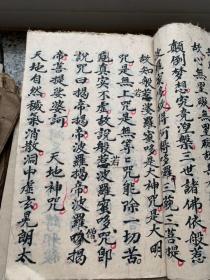 故心無罣礙無罣礙故
顛倒夢想究竟涅槃三世諸佛依般若
波羅蜜多故得阿耨多羅三藐三菩提
故知般若波羅蜜多是大神咒是大明
咒是無上咒是無等等咒能除一切苦
真實不虛故說般若波羅蜜多咒即
說咒曰揭帝揭帝波羅揭帝波羅僧揭
帝菩提娑婆訶 天地神咒
天地自然穢氣消散洞中虛玄晃朗太